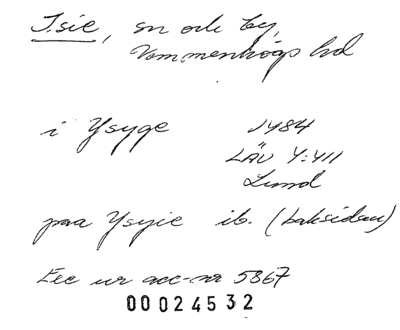 Isie, sn och by,
Vemmenhögs hd
i Ysyge 1484
LÄU Y:411
Lund
paa Ysyie ib. (baksidan)
Exc ur acc-nr 5867
00024532